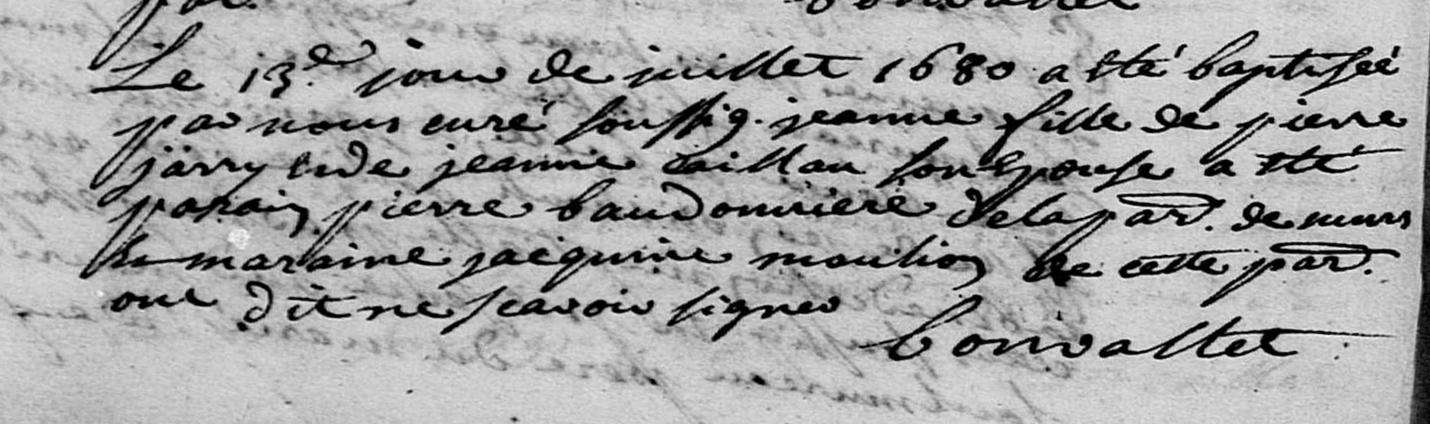 Le 13e jour de juillet 1680 a été baptisée
par nous curé soussig. jeanne fille de pierre
jarry et de jeanne caillau son epouse a été
parain pierre baudonniere de la par. de murs
la maraine jacquine moulion de cette par.
ont dit ne scavoir signer
bonvallet